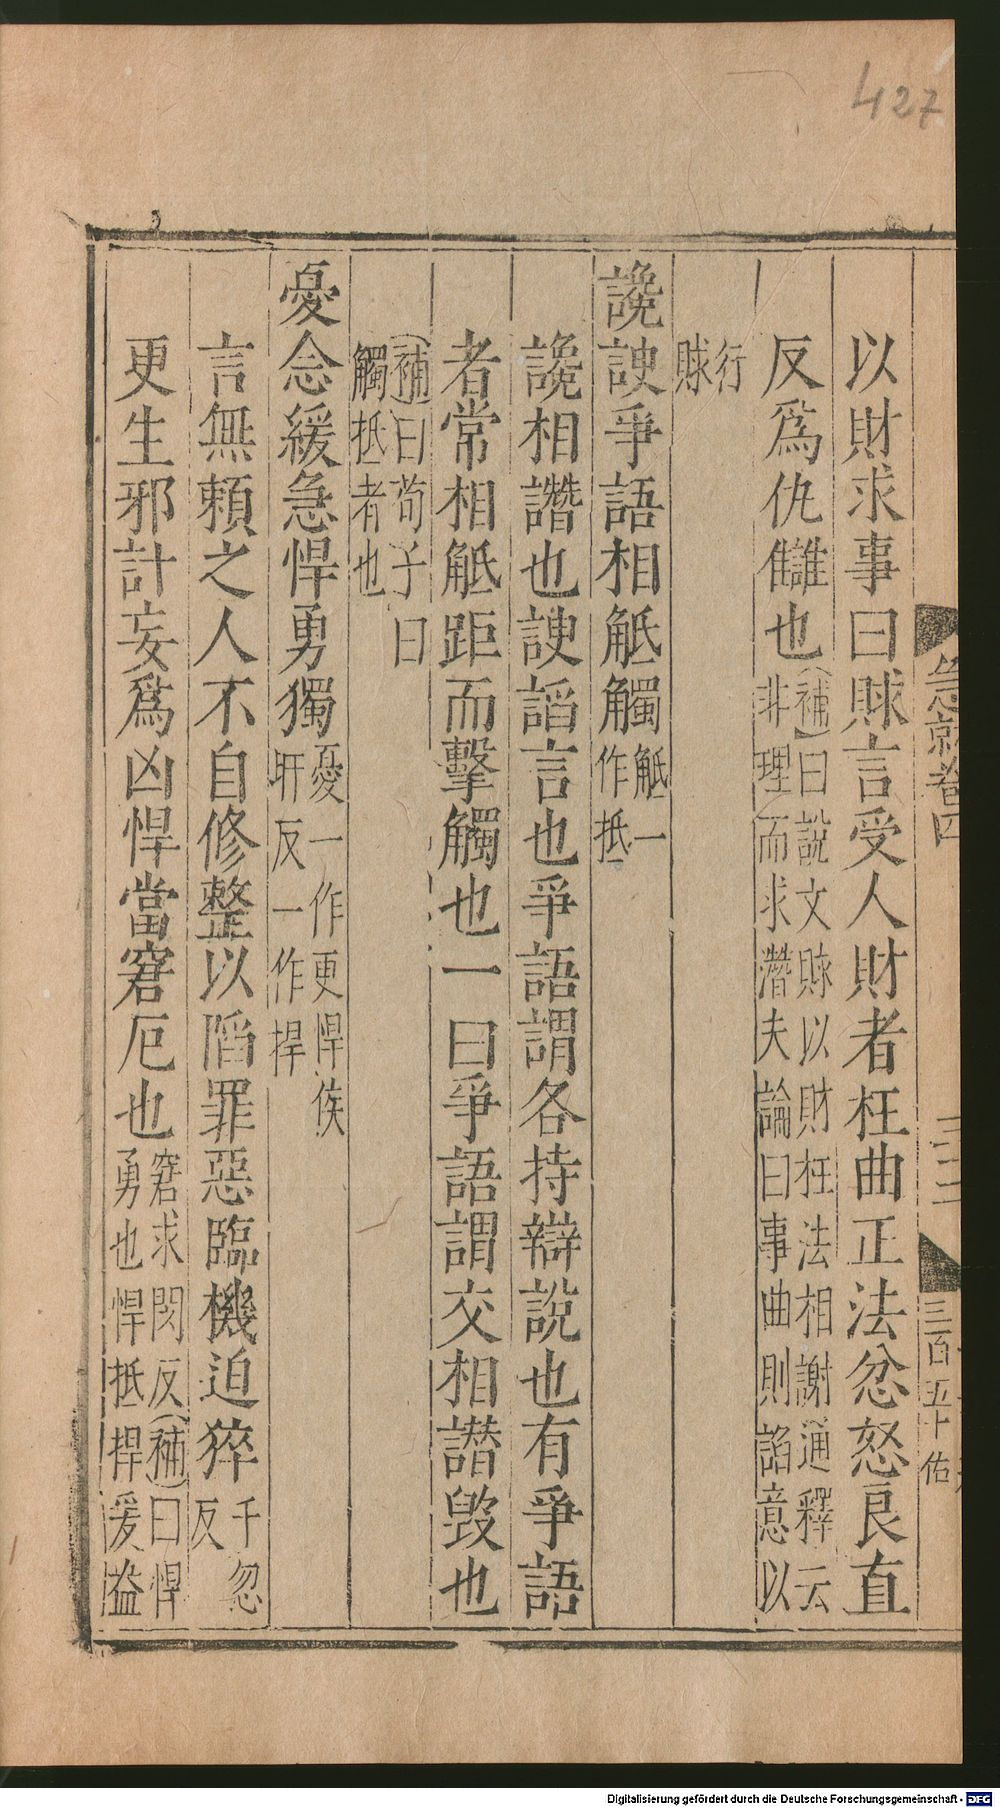 427
急就卷四
三百五十
佑
以財求事曰賕言受人財者枉曲正法忿怒良直
反爲仇讎也(補)曰說文賕以財枉法相謝通釋云
非理而求潛夫論曰事曲則諂意以
行
賕
讒諛爭語相觝觸觝一
作抵
讒相譖也諛諂言也爭語謂各持辯說也有爭語
者常相觝距而擊觸也一曰爭語謂交相譖毀也
(補)曰荀子曰
觸抵者也
憂念緩急悍勇獨憂一作更悍侯
旰反一作捍
言無賴之人不自修整以陷罪惡臨機迫猝千忽
反
更生邪計妄爲凶悍當窘厄也窘求閔反(補)曰悍
勇也悍抵捍爰益
Digitalisierung gefördert durch die Deutsche Forschungsgemeinschaft - DFG